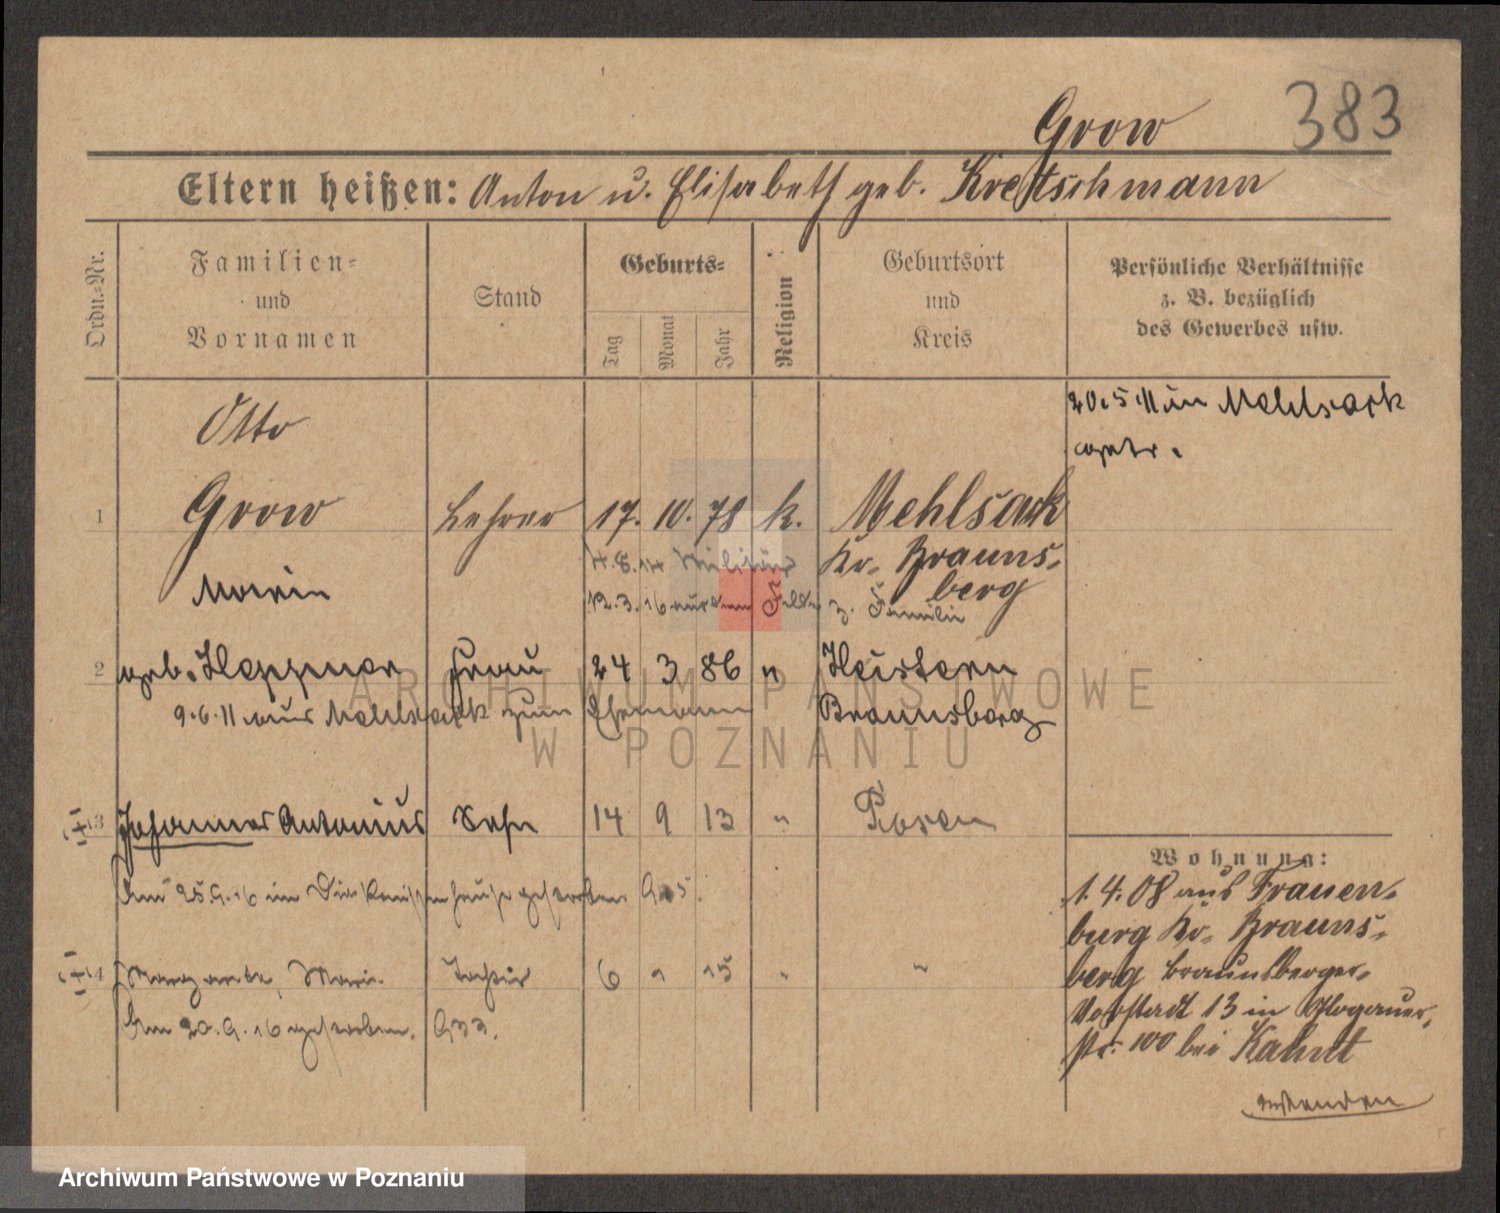 Grow 383
Eltern heißen: Anton u. Elisabeth geb. Kretschmann
Ordn.-Nr.
Familien-
und
Vornamen
Stand
Geburts-
Tag
Monat
Jahr
Religion
Geburtsort
und
Kreis
Persönliche Verhältnisse
z. B. bezüglich
des Gewerbes usw.
20.5.11 in Mehlsack
getr.
Otto
1 Grow Lehrer 17. 10. 78 k. Mehlsack
4.8.14 Militär Kr. Brauns-
berg
12.3.16 aus dem Felde z. Familie
Maria
2 geb. Heppner Frau 24 3 86 " Heistern
9.6.11 aus Mehlsack zum Ehemann Braunsberg
3 Johannes Antonius Sohn 14 9 13 " Posen
Am 25.9.16 im Diakonissenhause gestorben
4 Margarete, Maria Tochter 6 15 " "
Am 20.9.16 gestorben.
Wohnung:
1.4.08 aus Frauen-
burg Kr. Brauns-
berg Braunsberger-
Vorstadt 13 in Glogauer-
str. 100 bei Kahnt
wenden
ARCHIWUM PAŃSTWOWE
W POZNANIU
Archiwum Państwowe w Poznaniu